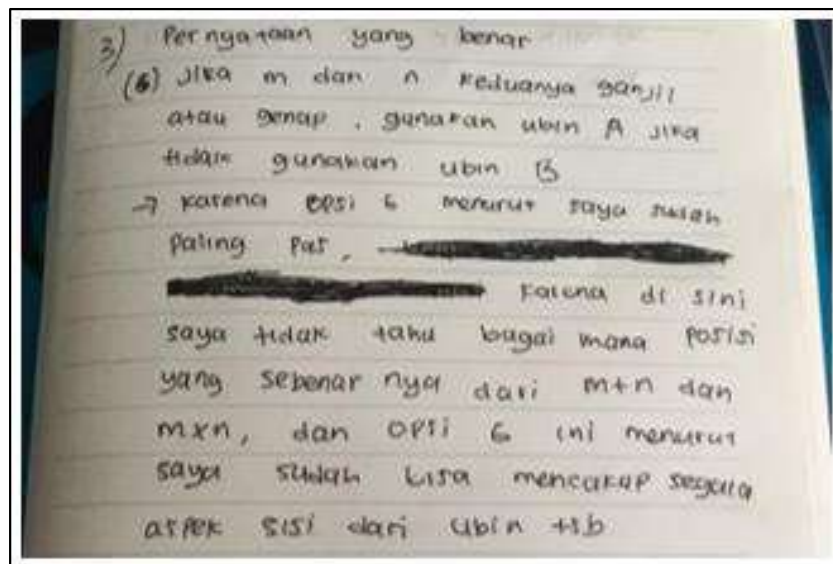 3) Pernyataan yang benar
(6) Jika m dan n keduanya ganjil
atau genap, gunakan ubin A Jika
tidak gunakan ubin B
→ karena opsi 6 menurut saya sudah
paling pas,
karena di sini
saya tidak tahu bagai mana posisi
yang sebenar nya dari m+n dan
mxn, dan opsi 6 ini menurut
saya sudah bisa mencakup segala
aspek sisi dari ubin tsb